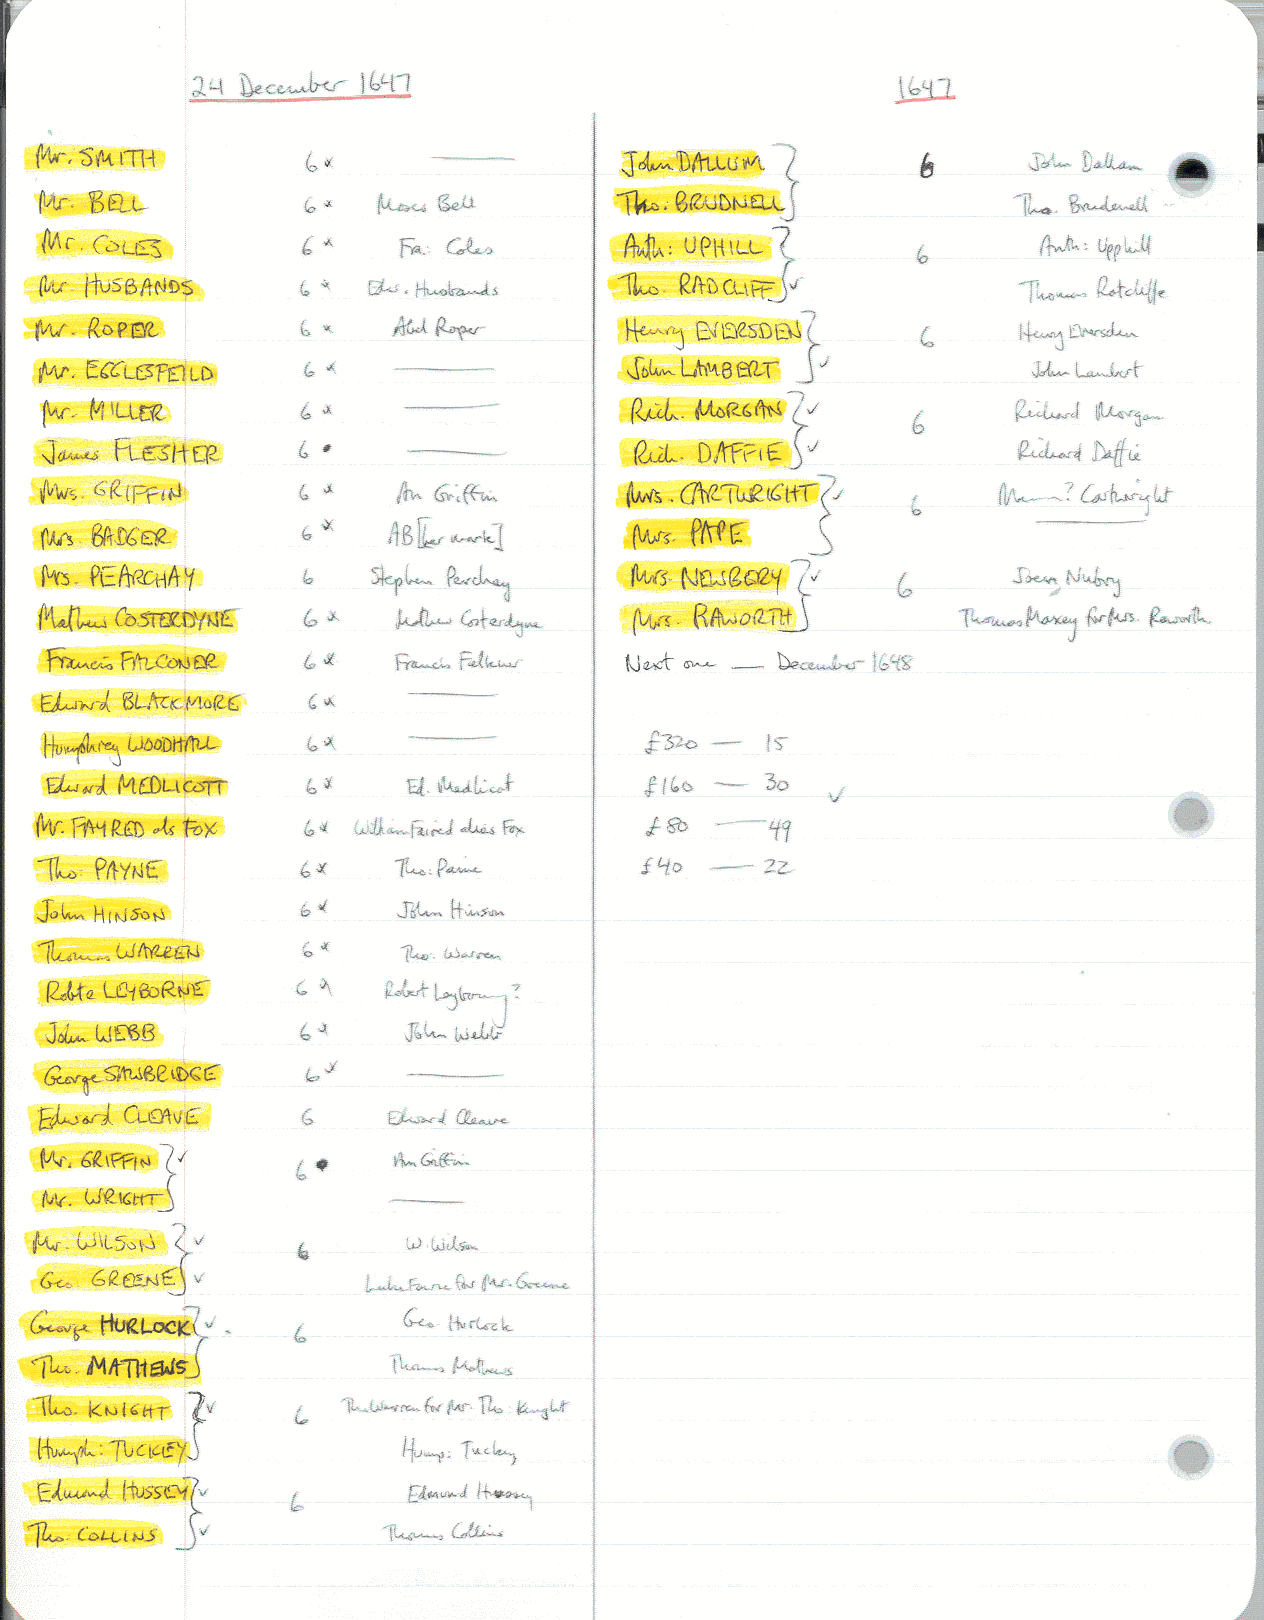 24 December 1647
Mr. SMITH 6 x ———
Mr. BELL 6 x Moses Bell
Mr. COLES 6 x Fra: Coles
Mr. HUSBANDS 6 x Edw. Husbands
Mr. ROPER 6 x Abel Roper
Mr. EGGLESFEILD 6 x ———
Mr. MILLER 6 x ———
James FLESHER 6 • ———
Mrs. GRIFFIN 6 x An Griffin
Mrs BADGER 6 x AB [her mark]
Mrs. PEARCHAY 6 Stephen Perchay
Mathew COSTERDYNE 6 x Mathew Costerdyne
Francis FALCONER 6 x Francis Falkner
Edward BLACKMORE 6 x ———
Humphrey WOODHALL 6 x ———
Edward MEDLICOTT 6 x Ed. Medlicot
Mr. FAYRED als FOX 6 x William Faired alias Fox
Tho: PAYNE 6 x Tho: Paine
John HINSON 6 x John Hinson
Thomas WARREN 6 x Tho: Warren
Robte LEYBORNE 6 Robert Leybourny?
John WEBB 6 x John Webb
George SAWBRIDGE 6 x ———
Edward CLEAVE 6 Edward Cleave
Mr. GRIFFIN } ✓ 6 • An Griffin
Mr. WRIGHT ———
Mr. WILSON } ✓ 6 W. Wilson
Geo GREENE ✓ Luke Fawne for Mr. Greene
George HURLOCK } ✓ 6 Geo Hurlock
Tho. MATHEWS Thomas Mathews
Tho. KNIGHT } ✓ 6 Tho Warren for Mr. Tho: Knight
Humph: TUCKEY Hump: Tuckey
Edmund HUSSEY } ✓ 6 Edmund Hussey
Tho. COLLINS ✓ Thomas Collins
1647
John DALLUM } 6 John Dallam
Tho. BRUDNELL Tho. Brudenell
Anth: UPHILL } 6 Anth: Upphill
Tho. RADCLIFF ✓ Thomas Ratcliffe
Henry EVERSDEN } 6 Henry Eversden
John LAMBERT ✓ John Lambert
Rich. MORGAN } ✓ 6 Richard Morgan
Rich. DAFFIE ✓ Richard Daffie
Mrs. CARTWRIGHT } ✓ 6 Cartwright
Mrs. PAPE ———
Mrs. NEWBERY } ✓ 6 Nubry
Mrs. RAWORTH Thomas Maxey for Mrs. Raworth
Next one — December 1648
£320 — 15
£160 — 30 ✓
£80 — 49
£40 — 22